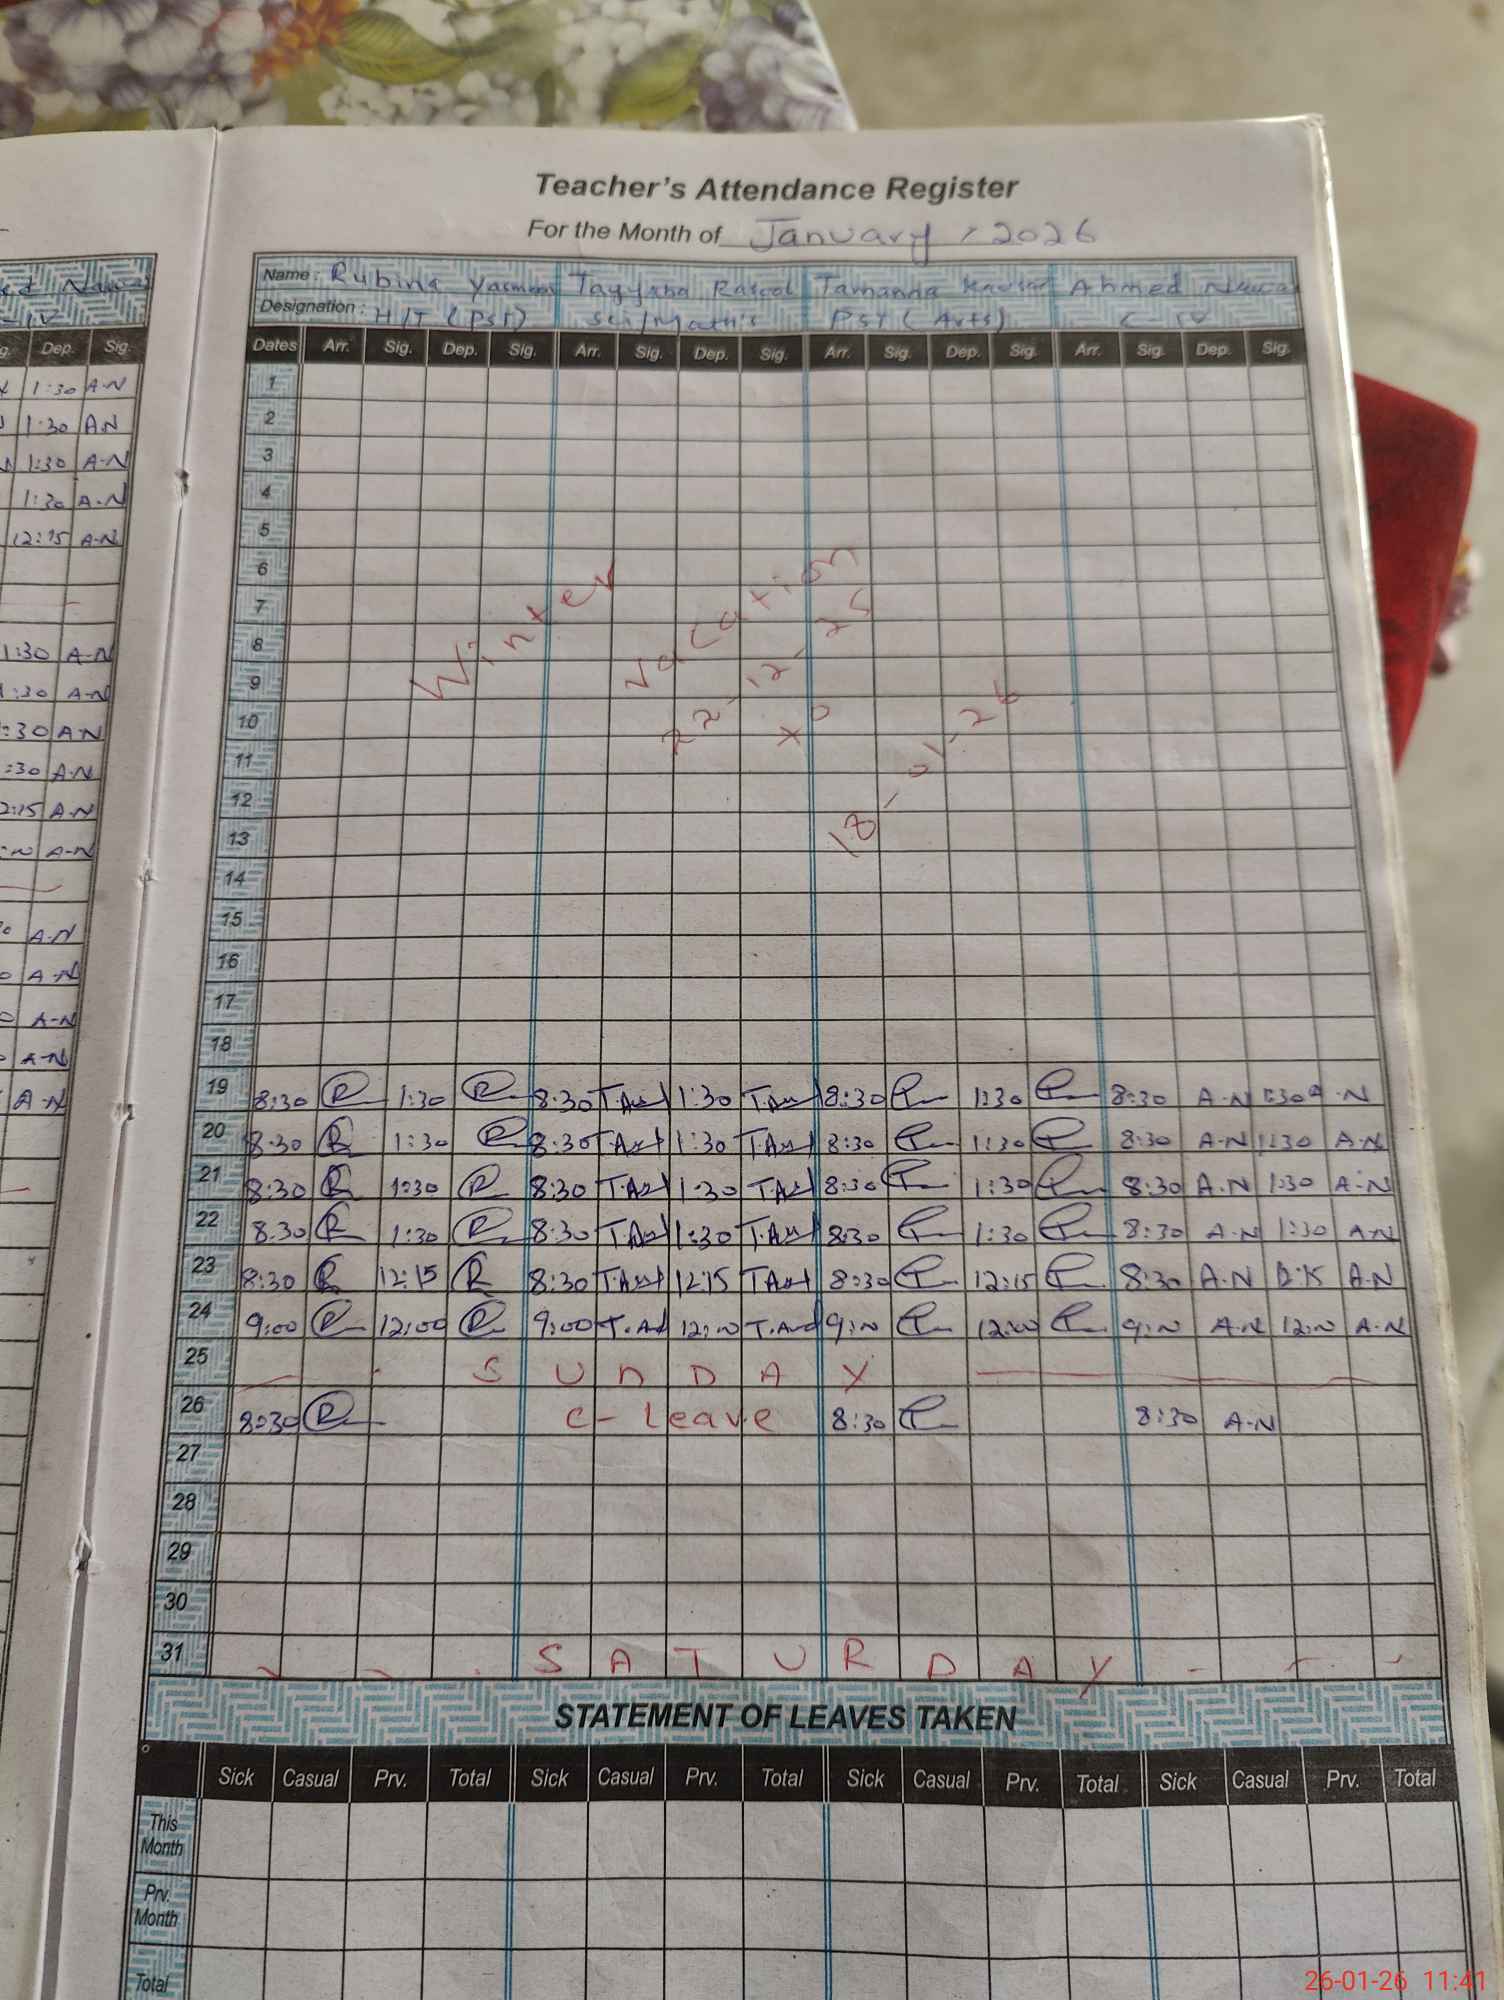 Teacher's Attendance Register
For the Month of January, 2026
Name: Rubina Yasmeen Tayyaba Rasool Tamanna Kausar Ahmed Nawaz
Designation: H/T (PST) Sci/Math's PST (Arts) C-IV
Dates Arr. Sig. Dep. Sig. Arr. Sig. Dep. Sig. Arr. Sig. Dep. Sig. Arr. Sig. Dep. Sig.
1
2
3
4
5
6
7
8
9
10
11
12
13
14
15
16
17
18
Winter vacation
22-12-25
to
18-01-26
19 8:30 1:30 8:30 1:30 8:30 1:30 8:30 A.N 1:30 A.N
20 8:30 1:30 8:30 1:30 8:30 1:30 8:30 A.N 1:30 A.N
21 8:30 1:30 8:30 1:30 8:30 1:30 8:30 A.N 1:30 A.N
22 8:30 1:30 8:30 1:30 8:30 1:30 8:30 A.N 1:30 A.N
23 8:30 12:15 8:30 12:15 8:30 12:15 8:30 A.N 12:15 A.N
24 9:00 12:00 9:00 12:00 9:00 12:00 9:00 A.N 12:00 A.N
25 SUNDAY
26 8:30 C-Leave 8:30 8:30 A.N
27
28
29
30
31 SATURDAY
STATEMENT OF LEAVES TAKEN
Sick Casual Prv. Total Sick Casual Prv. Total Sick Casual Prv. Total Sick Casual Prv. Total
This Month
Prv. Month
Total
Dep. Sig.
1:30 A-N
1:30 A.N
1:30 A-N
1:30 A-N
12:15 A-N
1:30 A-N
1:30 A-N
1:30 A-N
1:30 A-N
12:15 A-N
A-N
A-N
A-N
A-N
A-N
A-N
26-01-26 11:41